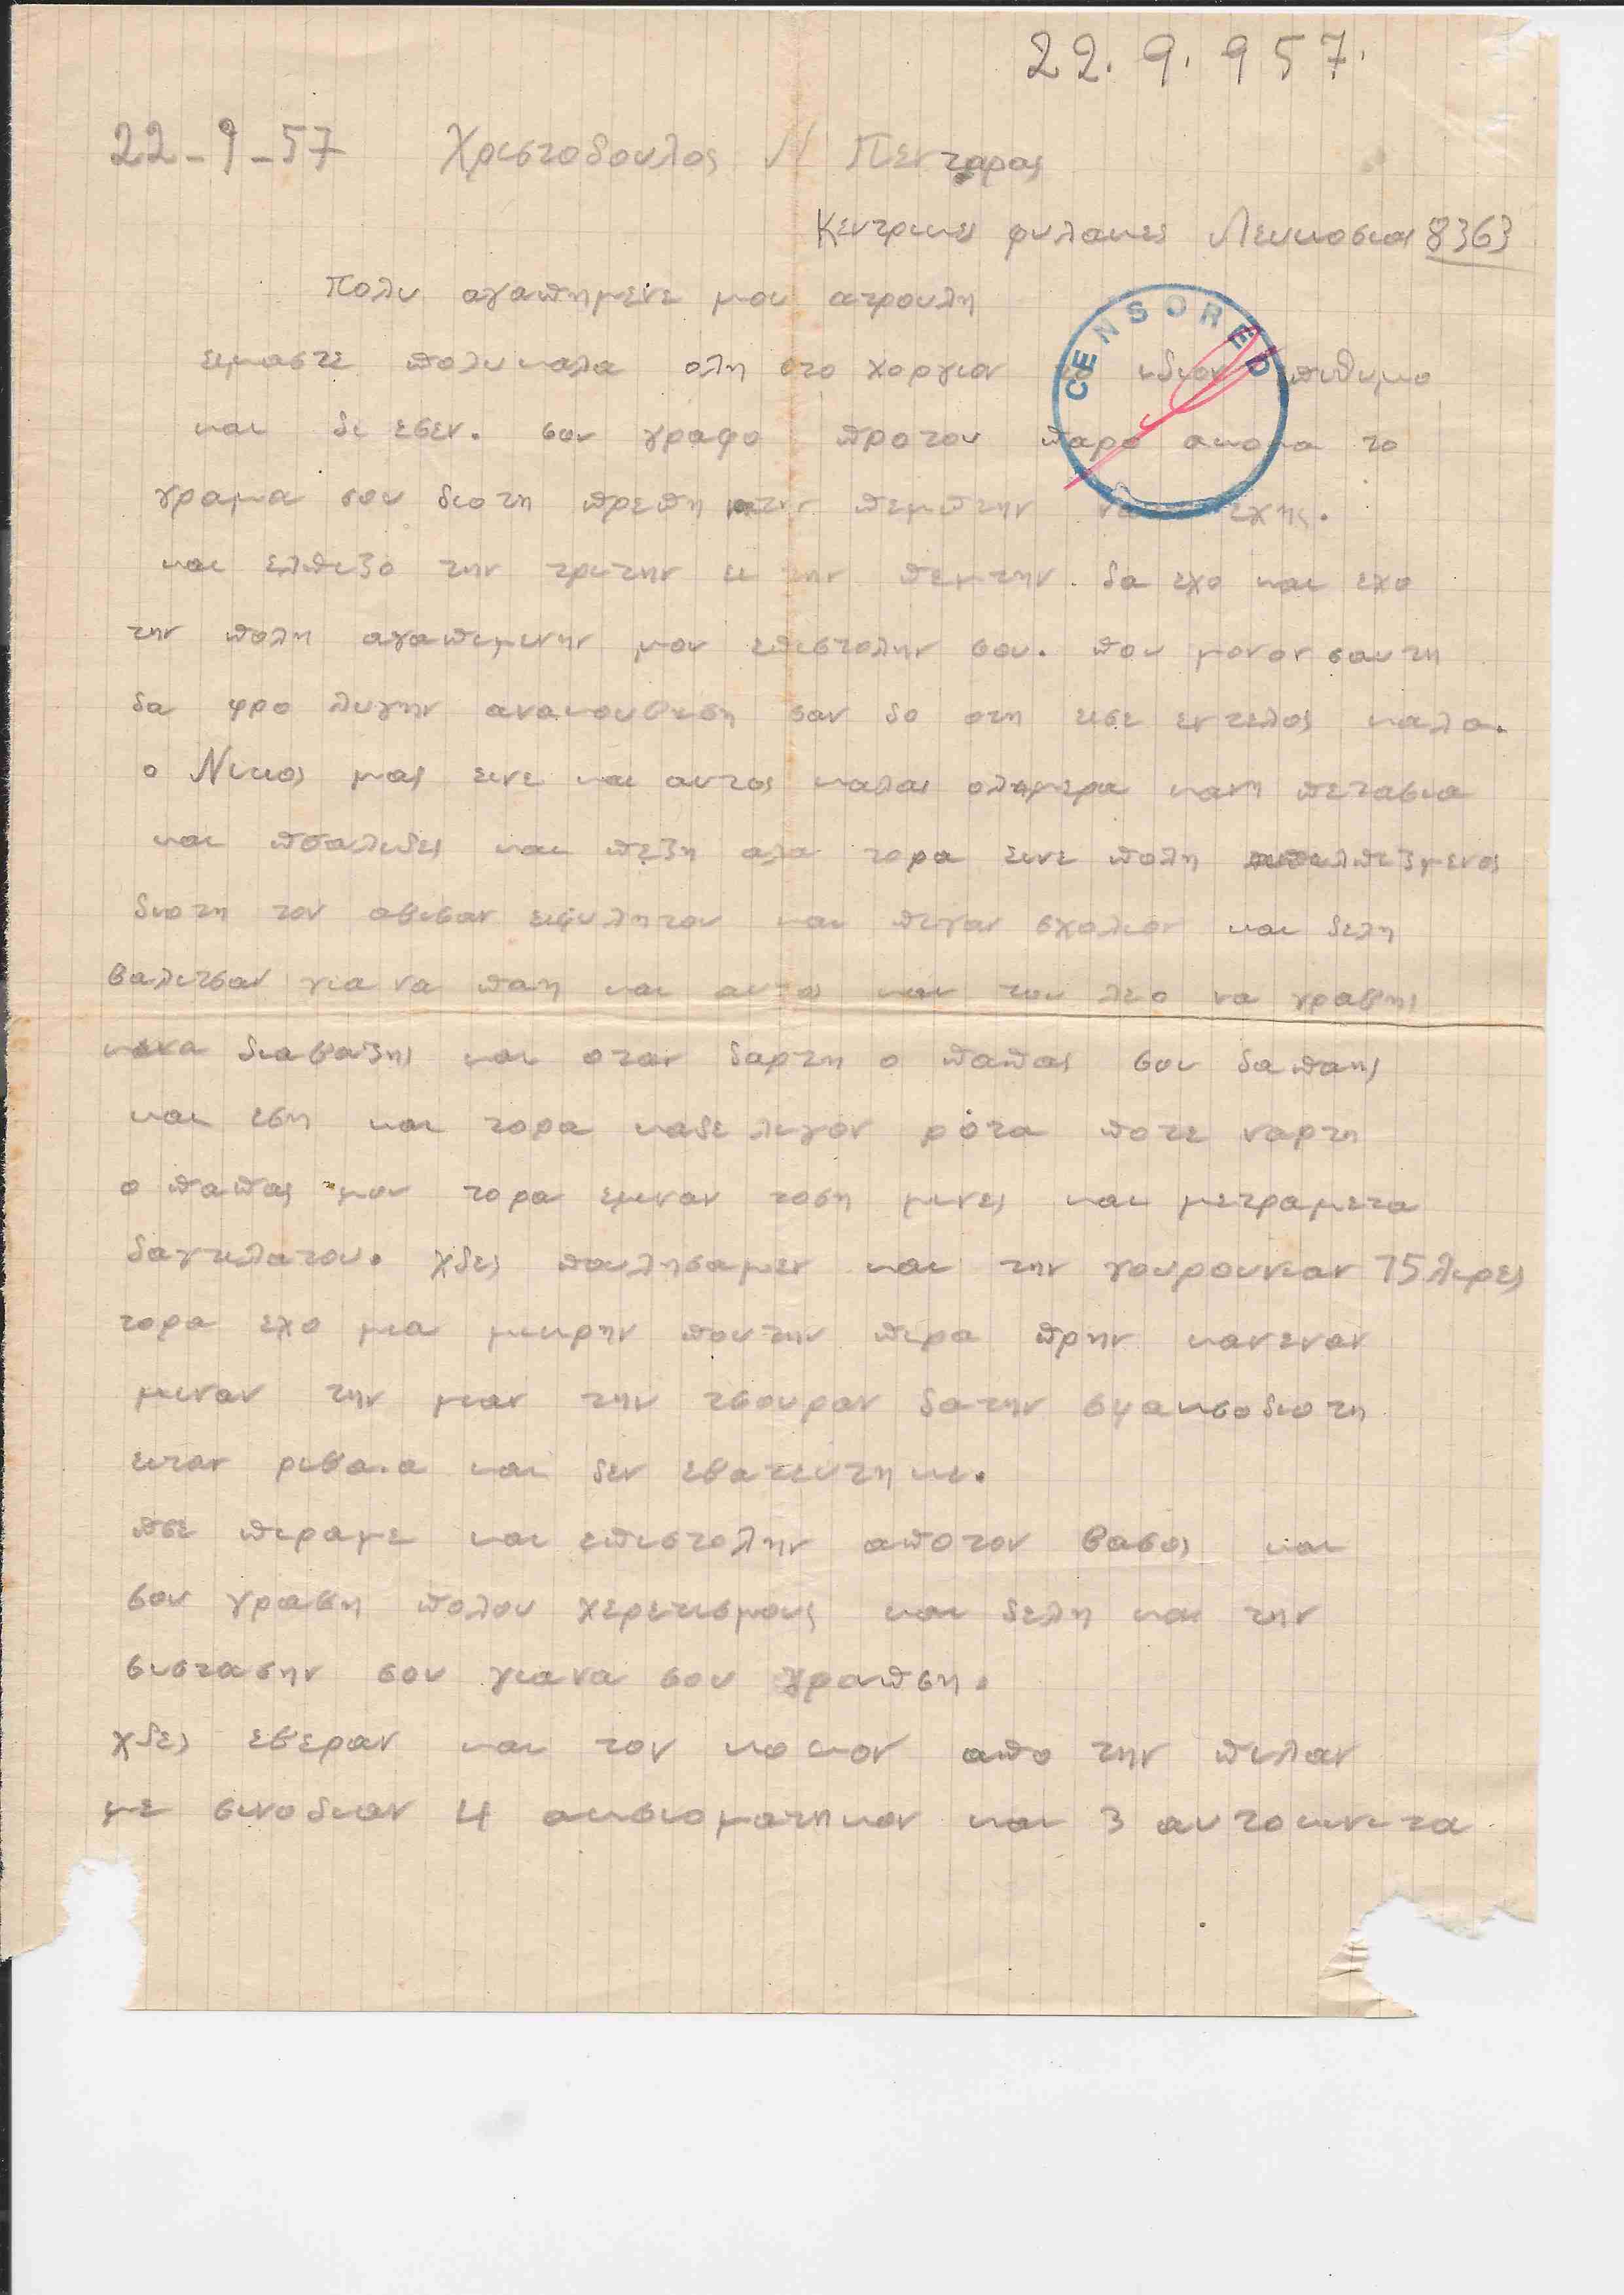 22. 9. 957.
22-9-57 Χριστοδουλος Ν Πενταρας
Κεντρικες φυλακες Λευκοσιας 8363
Πολυ αγαπημενε μου ατρουλη
CENSORED
ειμαστε πολυ καλα ολη στο χοργιον ιδιον πιθυμο
και δι εσεν. σου γραφο προτου παρο ακομα το
γραμα σου διοτη πρεπη την πεμπτην εχης.
και ελπιζο την τριτην ει την πεμτην δα εχο και εχο
την πολη αγαπιμενην μου επιστολην σου. που μονον σαυτη
δα βρο λιγην ανακουβιση σαν δο οτη εισε εντελος καλα.
ο Νικος μας εινε και αυτος καλας οληιμερα κανη πετασια
και πσαλιδες και πεζη αλα τορα εινε πολη
διοτη τον αβισαν ειφυλητου και πιγαν σχολιον και δελη
βαλιτσαν για να παη και αυτος και του λεο να γραβης
κενα διαβαζης και οταν δαρτη ο παπας σου δαπαης
και εση και τορα καδε λιγον ροτα ποτε ναρτη
ο παπας μου τορα εμιναν τοση μινες και μετραμετα
δαγτιλατου. χδες πουλησαμεν και την γουρουνιαν 75 λιρες
τορα εχο μια μικρην που την πιρα πρην κανεναν
μιναν την μιαν την τσουραν δατην σφακσο διοτη
ειταν ριβαια και δεν εβατευτηκε.
πσε πιραμε και επιστολην αποτον βασος και
σου γραβη πολου χερετισμους και δελη και την
συστασην σου γιανα σου γραπση.
χδες εβεραν και τον κοκον απο την πιλαν
με σινοδιαν 4 ακσιοματηκον και 3 αυτοκινιτα